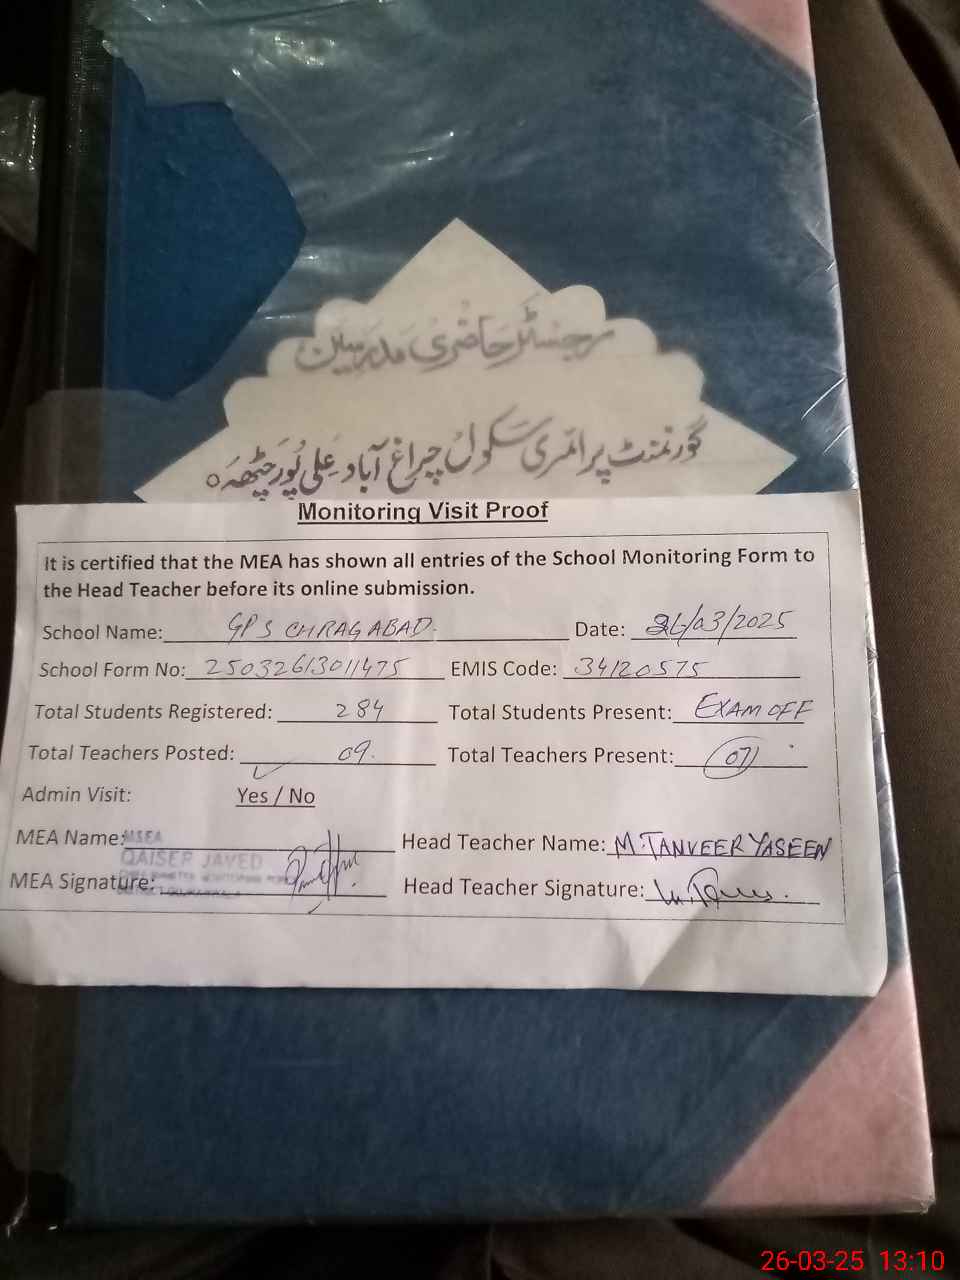 رجسٹر حاضری مدرسین
گورنمنٹ پرائمری سکول چراغ آباد علی پور چٹھہ
Monitoring Visit Proof
It is certified that the MEA has shown all entries of the School Monitoring Form to
the Head Teacher before its online submission.
School Name: GPS CHRAGABAD. Date: 26/03/2025
School Form No: 25032613011475 EMIS Code: 34120575
Total Students Registered: 284 Total Students Present: EXAM OFF
Total Teachers Posted: 09. Total Teachers Present: 07
Admin Visit: Yes / No
MEA Name: MSEA Head Teacher Name: M. TANVEER YASEEN
QAISER JAVED
MEA Signature: Head Teacher Signature:
26-03-25 13:10